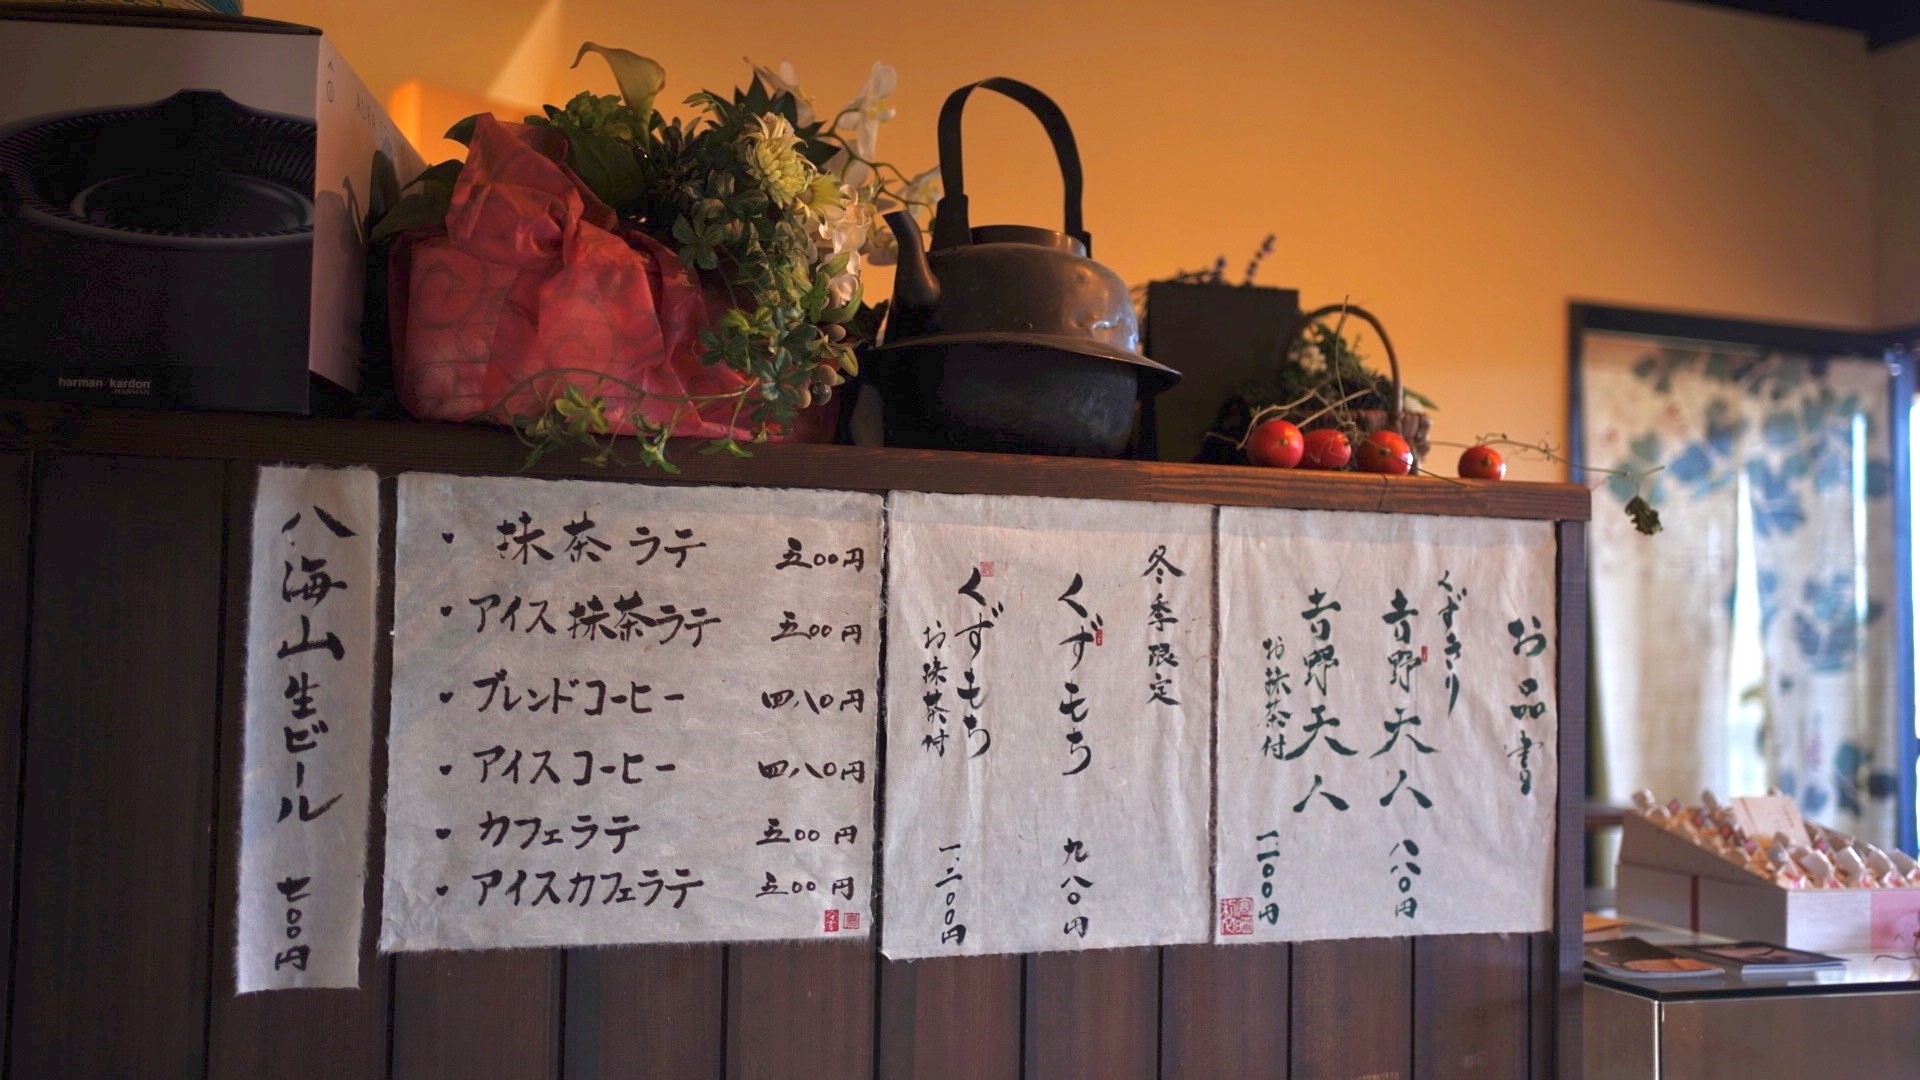 harman / kardon
HARMAN
お品書
くずきり
吉野天人 八八〇円
吉野天人
お抹茶付 一、一〇〇円
冬季限定
くずもち 九八〇円
くずもち
お抹茶付 一、二〇〇円
・抹茶ラテ 五〇〇円
・アイス抹茶ラテ 五〇〇円
・ブレンドコーヒー 四八〇円
・アイスコーヒー 四八〇円
・カフェラテ 五〇〇円
・アイスカフェラテ 五〇〇円
八海山生ビール 七〇〇円